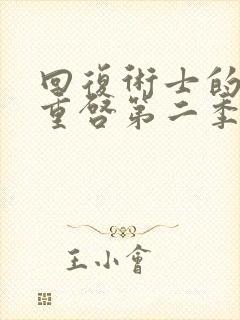 回復術士的
重啓第二季
王小會